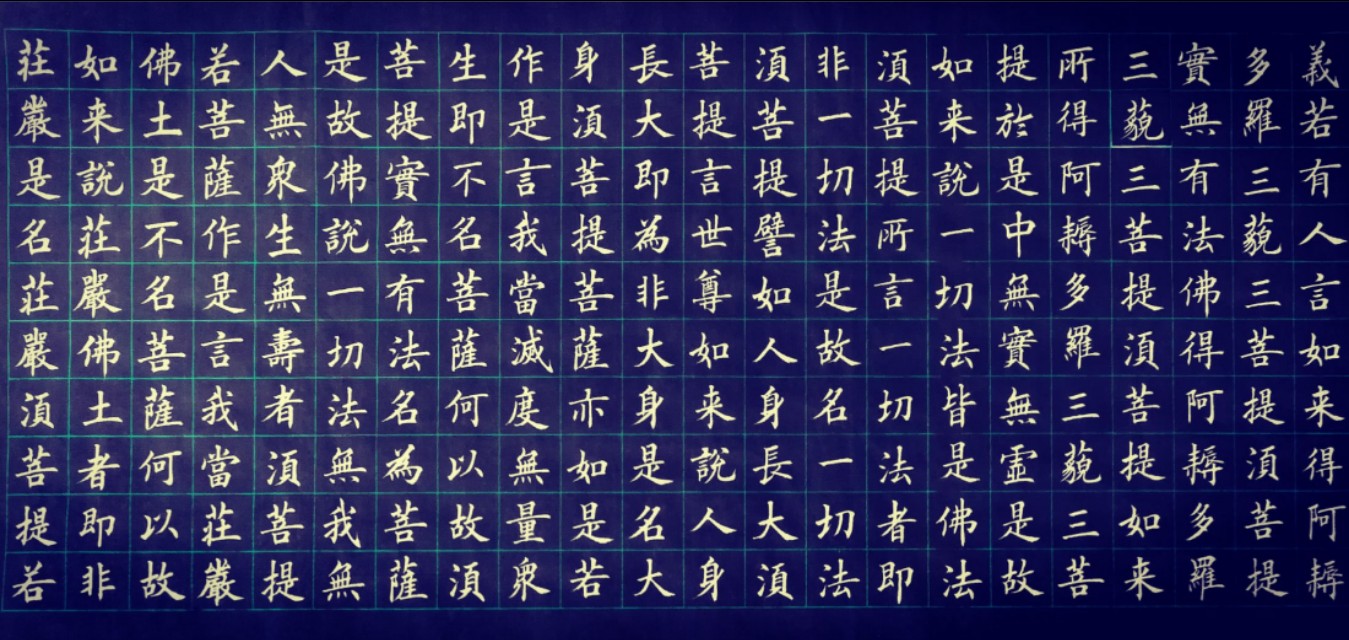 義若有人言如来得阿耨
多羅三藐三菩提湏菩提
實無有法佛得阿耨多羅
三藐三菩提湏菩提如来
所得阿耨多羅三藐三菩
提於是中無實無虛是故
如来說一切法皆是佛法
湏菩提所言一切法者即
非一切法是故名一切法
湏菩提譬如人身長大湏
菩提言世尊如来說人身
長大即為非大身是名大
身湏菩提菩薩亦如是若
作是言我當滅度無量衆
生即不名菩薩何以故湏
菩提實無有法名為菩薩
是故佛說一切法無我無
人無衆生無壽者湏菩提
若菩薩作是言我當荘嚴
佛土是不名菩薩何以故
如来說荘嚴佛土者即非
荘嚴是名荘嚴湏菩提若